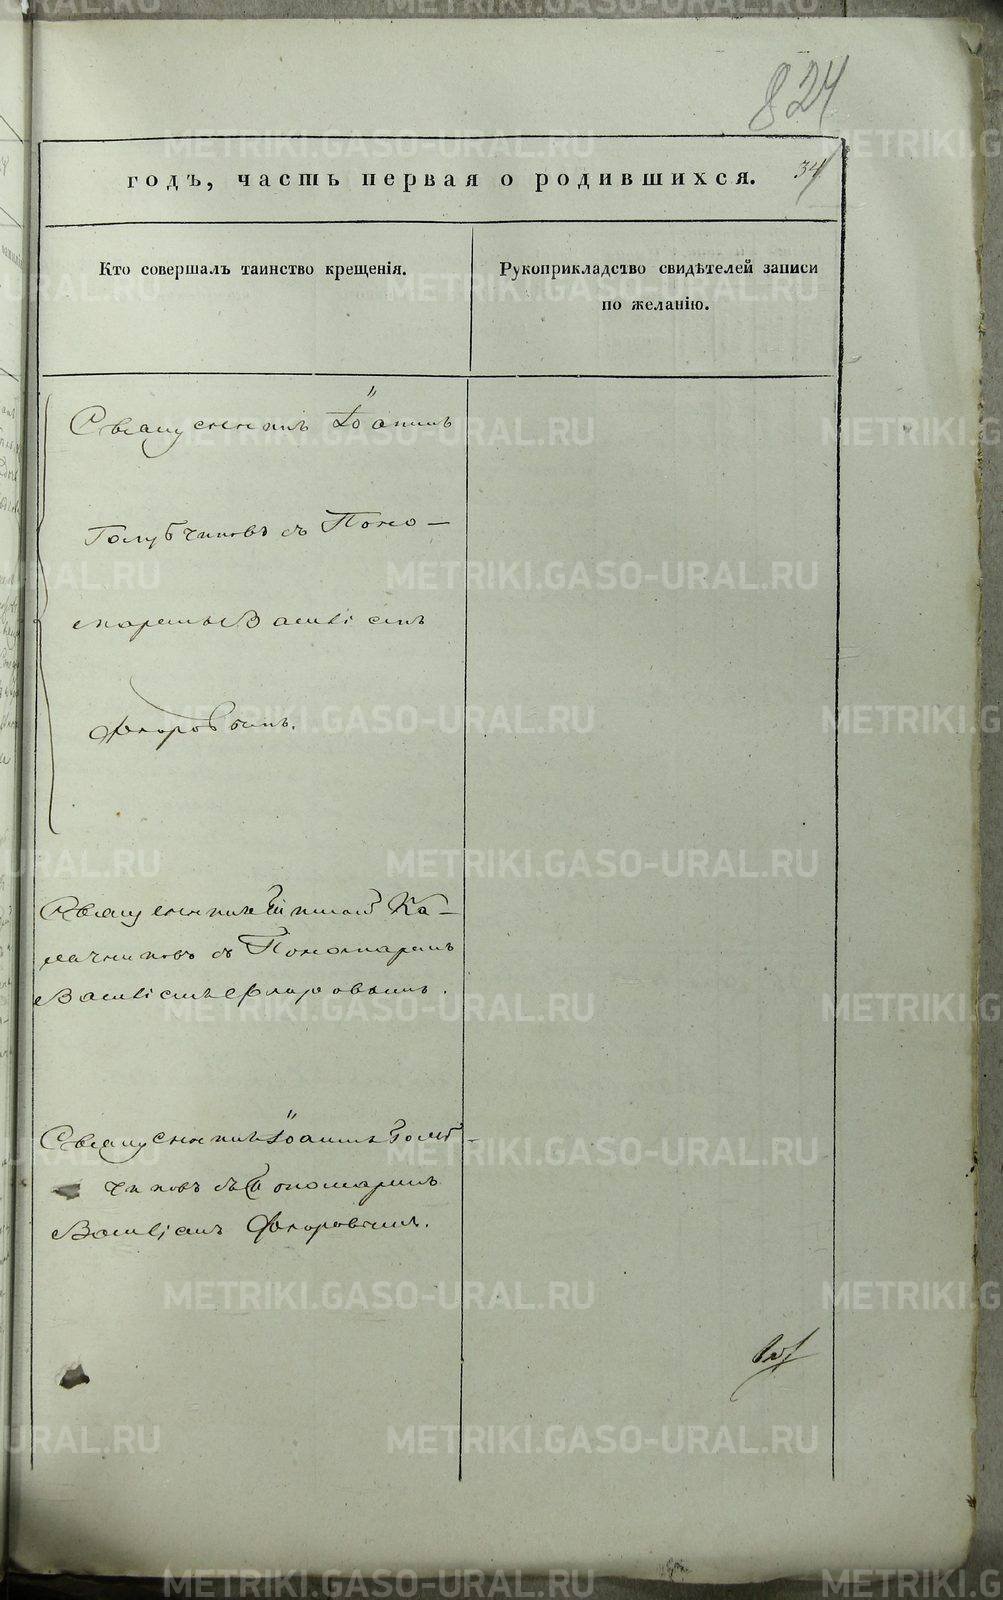 824
годъ, часть первая о родившихся.
34
Кто совершалъ таинство крещенія.
Рукоприкладство свидѣтелей записи
по желанію.
Священникъ Іоаннъ
Голубчиковъ съ Поно-
маремъ Василіемъ
Флоровымъ.
Священникъ Калачниковъ съ Пономаремъ
Василіемъ Флоровымъ.
Священникъ Іоаннъ Голуб-
чиковъ съ Пономаремъ
Василіемъ Флоровымъ.
METRIKI.GASO-URAL.RU